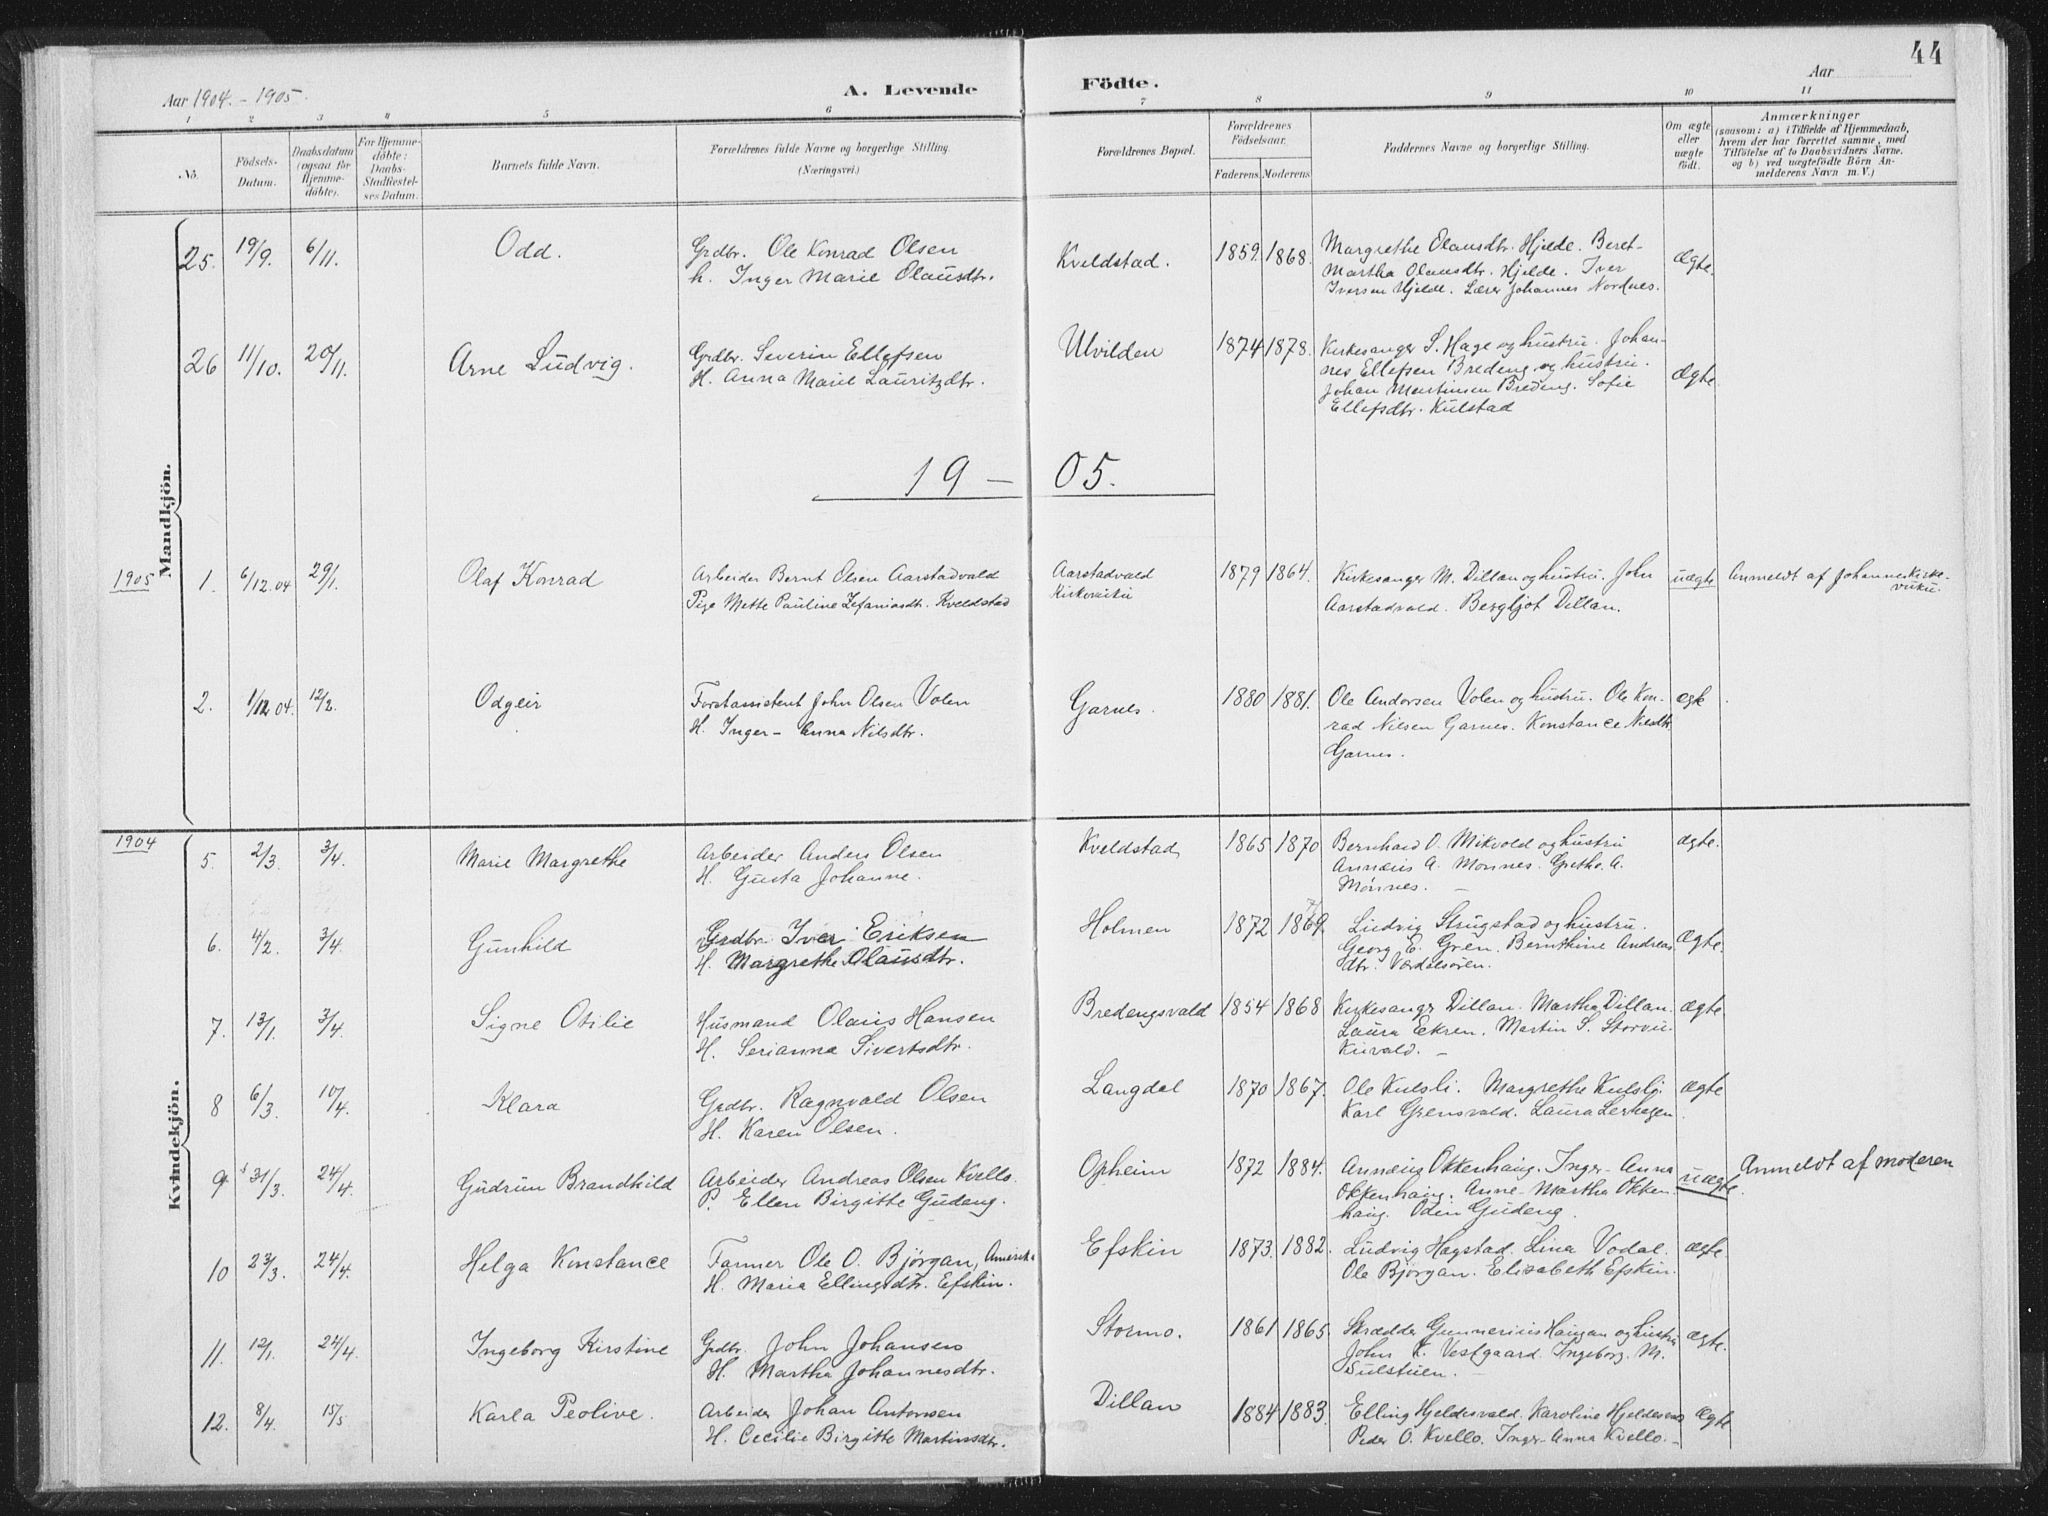 44
Aar 1904.-1905.
A. Levende
Födte.
Aar
1 2 3 4 5 6 7 8 9 10 11
No.
Födsels-Datum.
Daabsdatum (ogsaa for Hjemme-döbte).
For Hjemme-döbte: Daabs-Stadfæstel-ses Datum.
Barnets fulde Navn.
Forældrenes fulde Navne og borgerlige Stilling. (Næringsvei.)
Forældrenes Bopæl.
Forældrenes Födselsaar.
Faderens Moderens
Faddernes Navne og borgerlige Stilling.
Om ægte eller uægte födt.
Anmærkninger
(saasom: a) i Tilfælde af Hjemmedaab,
hvem der har forrettet samme, med
Tilföielse af to Daabsvidners Navne.
og b) ved uægtefödte Börn An-
melderens Navn m. V.)
Mandkjön.
25. 19/9. 6/11. Odd. Grdbr. Ole Konrad Olsen Kveldstad. 1859. 1868. Margrethe Olausdtr. Hjelde. Beret- Ægte.
h. Inger Marie Olausdtr. Martha Olausdtr. Hjelde. Iver
Iversen Hjelde. Lærer Johannes Nordnes.
26 11/10. 20/11. Arne Ludvig. Grdbr. Severin Ellefsen Ulvilden 1874 1878. Kirkesanger S. Hage og hustru. Johan-
H. Anna Marie Lauritzdtr. nes Ellefsen Bredeng og hustru. Ægte
Johan Martinsen Bredeng. Sofie
Ellefsdtr. Kulstad
19 - 05.
1905 1. 6/12 04 29/1. Olaf Konrad Arbeider Bernt Olsen Aarstadvald Aarstadvald 1879 1864. Kirkesanger M. Dillan og hustru. John uægte Anmeldt af Johannes Kirke-
Pige Mette Pauline Zefaniasdtr. Kveldstad Kirkevuku Aarstadvald. Bergljot Dillan. vuku.
2. 1/12 04. 12/2. Odgeir Forstassistent John Olsen Volen Garnes. 1880 1881. Ole Andorsen Volen og hustru. Ole Kon- ægte
H. Inger- Anna Nilsdtr. rad Nilsen Garnes. Konstance Nilsdtr.
Garnes.
Kvindekjön.
1904
5. 2/3. 3/4. Marie Margrethe Arbeider Anders Olsen Kveldstad 1865 1870 Bernhard O. Mikvold og hustru ægte.
H. Gusta Johanne. Annæus A. Monnes. Grethe A.
Mönnes. -
6. 4/2. 3/4. Gunhild Grdbr. Iver Eriksen Holmen 1872 1869. Ludvig Strugstad og hustru.
H. Margrethe Olausdtr. Georg E. Gren. Bernthine Andreas- Ægte.
dtr. Værdalsören.
7. 13/1. 3/4. Signe Otilie Husmand Olaus Hansen Bredengsvald 1854 1868 Kirkesangr Dillan. Martha Dillan. Ægte
H. Serianna Sivertsdtr. Laura Ekren. Martin S. Storvu-
kuvald. -
8 6/3. 10/4. Klara Grdbr. Ragnvald Olsen Langdal 1870 1867. Ole Kulsli. Margrethe Kulsli. Ægte
H. Karen Olsen. Karl Grensvald. Laura Lerhagen.
9. 31/3. 24/4. Gudrun Brandhild Arbeider Andreas Olsen Kvello. Opheim 1872 1884. Annæus Okkenhaug. Inger-Anna uægte. Anmeldt af moderen
P. Ellen Birgitte Gudeng. Okkenhaug. Anne-Martha Okken-
haug. Oden Gudeng.
10 23/3. 24/4. Helga Konstance Farmer Ole O. Björgan, Amerika Efskin 1873. 1882. Ludvig Hagstad. Lina Vodal. Ægte
H. Maria Ellingsdtr. Efskin. Ole Björgan. Elisabeth Efskin.
11. 12/1. 24/4. Ingeborg Kirstine Grdbr. John Johansen Stormo. 1861 1865. Skrædder Gunnerius Haugan og hustru Ægte.
H. Martha Johannesdtr. John K. Vestgaard. Ingeborg. M.
Sulstuen. -
12. 8/4. 15/5 Karla Peolive. Arbeider Johan Antonsen Dillan 1884 1883. Elling Hjeldesvald. Karoline Hjeldesvald Ægte
H. Cecilie Birgitte Martinsdtr. Peder O. Kvello. Inger-Anna Kvello. -